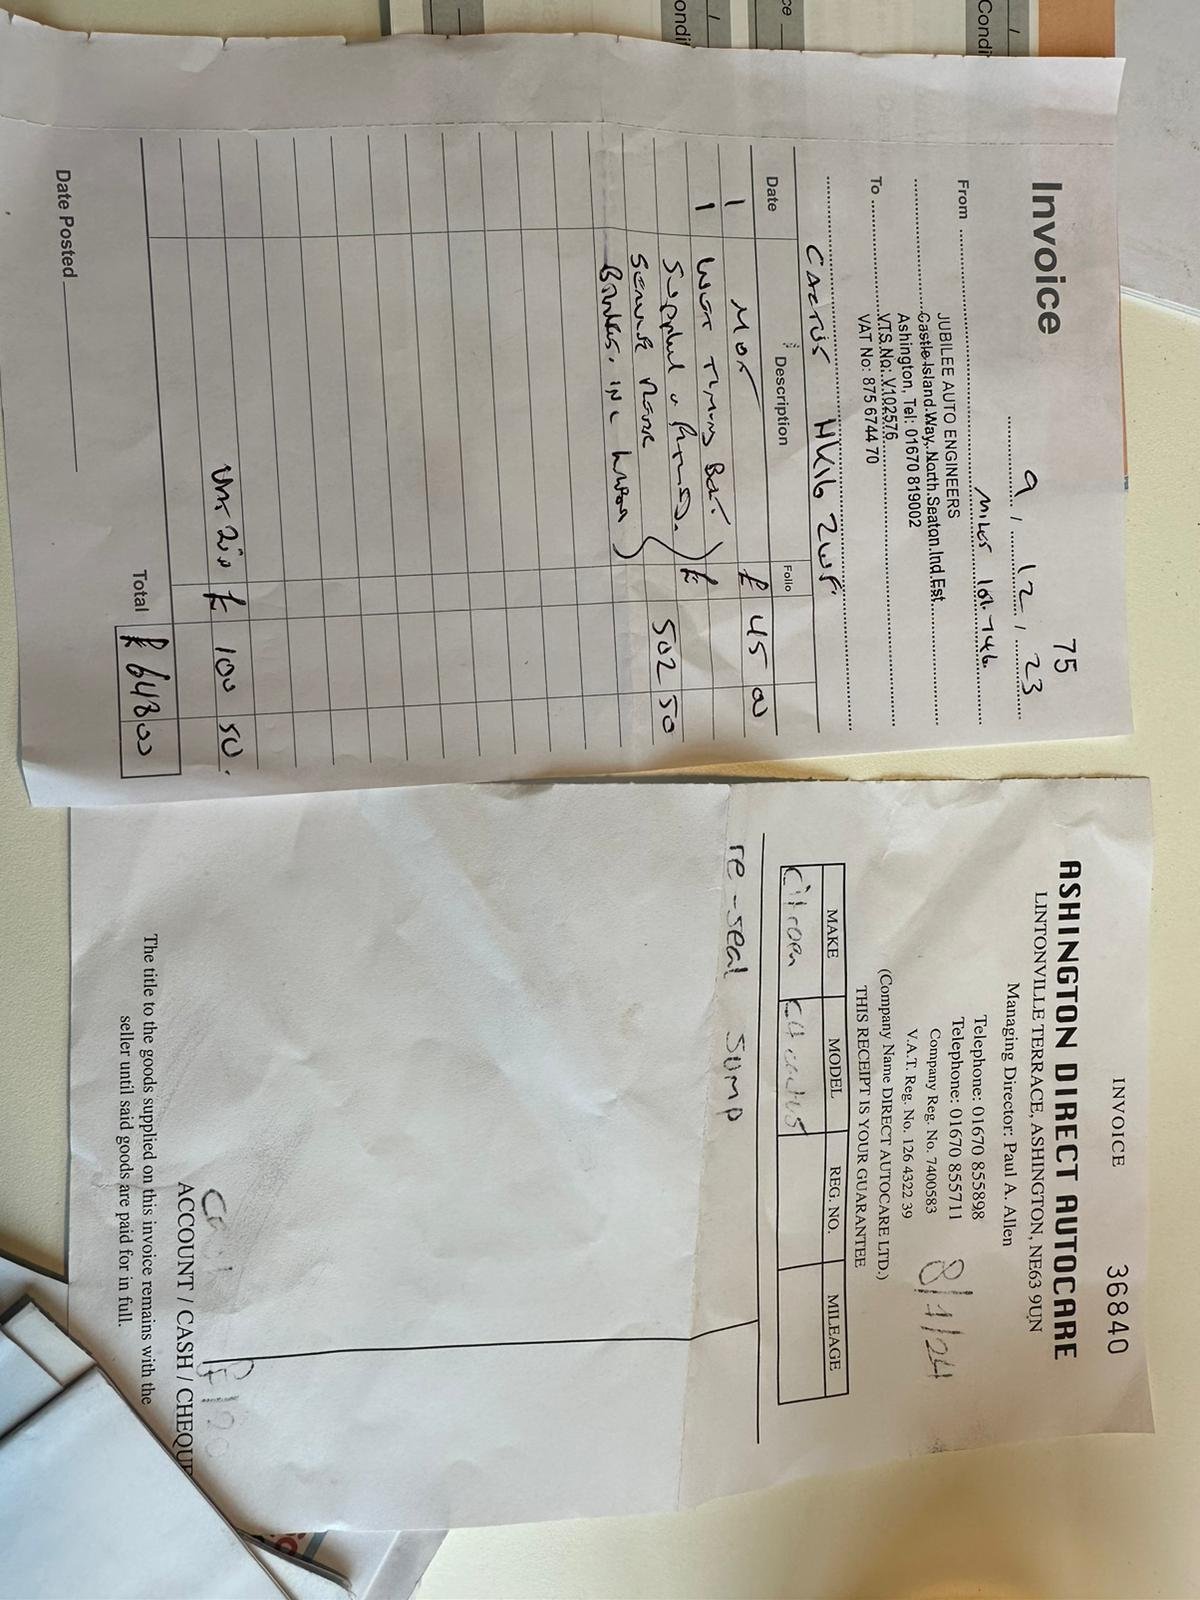 Invoice
75
9 / 12 / 23
Miles 101.746
From
JUBILEE AUTO ENGINEERS
Castle Island Way, North Seaton Ind Est
Ashington, Tel: 01670 819002
V.T.S. No: V102576
VAT No: 875 6744 70
To
CACTUS HK16 ZWF.
Date Description Folio
1 MOT £ 45 00
1 WET Timing BELT £
Supplied & fitted. 502 50
Brakes. INC
VAT 20% £ 100 50.
Total £648.00
Date Posted
INVOICE 36840
ASHINGTON DIRECT AUTOCARE
LINTONVILLE TERRACE, ASHINGTON, NE63 9UN
Managing Director: Paul A. Allen
Telephone: 01670 855898
Telephone: 01670 855711
Company Reg. No. 7400583
V.A.T. Reg. No. 126 4322 39
8/1/24
(Company Name DIRECT AUTOCARE LTD.)
THIS RECEIPT IS YOUR GUARANTEE
MAKE MODEL REG. NO. MILEAGE
Citroen C4 cactus
re-seal sump
£120
ACCOUNT / CASH / CHEQUE
The title to the goods supplied on this invoice remains with the
seller until said goods are paid for in full.